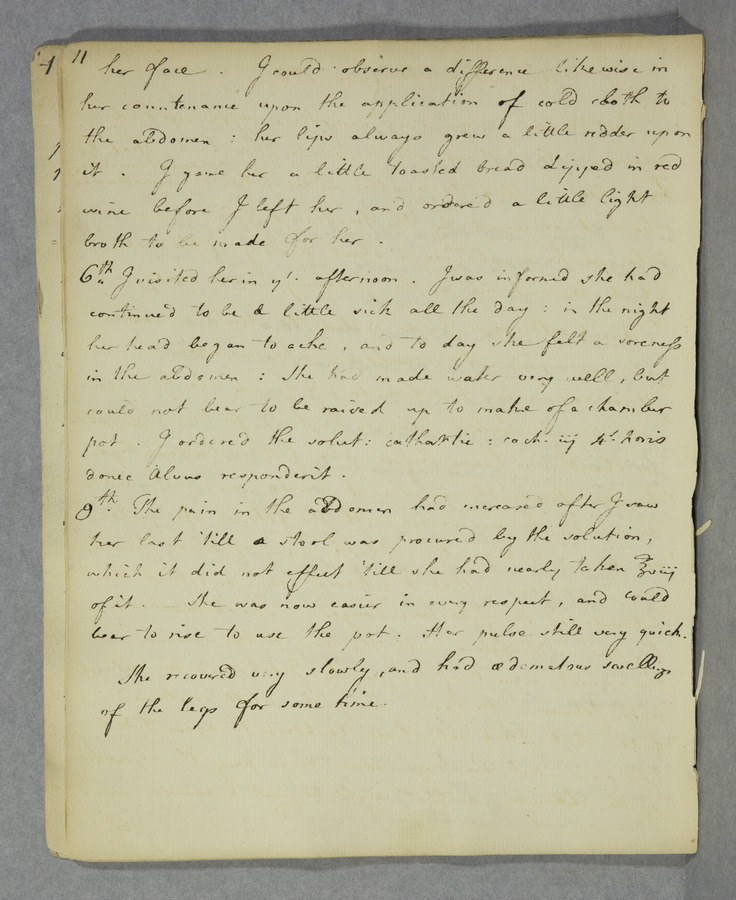 11
her face . I could observe a difference likewise in
her countenance upon the application of cold cloth to
the abdomen : her lips always grew a little redder upon
it . I gave her a little toasted bread dipped in red
wine before I left her , and ordered a little light
broth to be made for her .
6th I visited her in ye. afternoon . I was informed she had
continued to be a little sick all the day : in the night
her head began to ache , and to day she felt a soreness
in the abdomen : She had made water very well , but
could not bear to be raised up to make of a chamber
pot . I ordered the solut: cathartic : coch. iij 4s. horis
donec Alvus responderit .
9th. The pain in the abdomen had increased after I saw
her last 'till a stool was procured by the solution ,
which it did not effect 'till she had nearly taken ℥viij
of it . She was now easier in every respect , and could
bear to rise to use the pot . Her pulse still very quick .
She recovered very slowly , and had œdematous swellings
of the legs for some time .